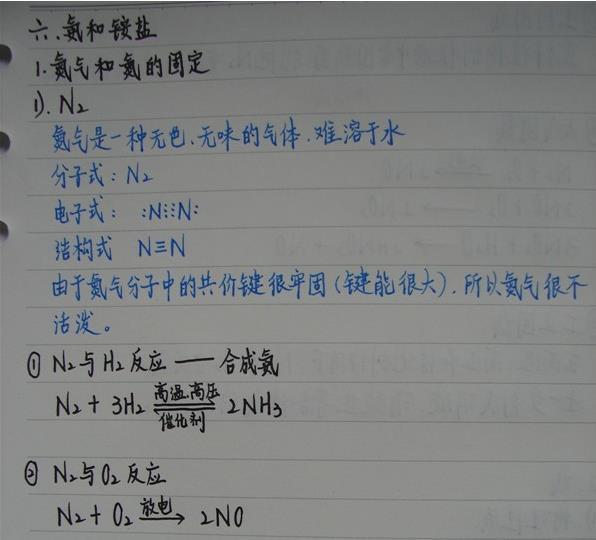 六.氨和铵盐
1.氮气和氮的固定
1). N₂
氮气是一种无色、无味的气体.难溶于水
分子式:N₂
电子式: :N⋮⋮N:
结构式 N≡N
由于氮气分子中的共价键很牢固(键能很大).所以氮气很不
活泼。
① N₂与H₂反应 —— 合成氨
N₂ + 3H₂ 高温.高压 催化剂 ⇌ 2NH₃
② N₂与O₂反应
N₂ + O₂ 放电 → 2NO